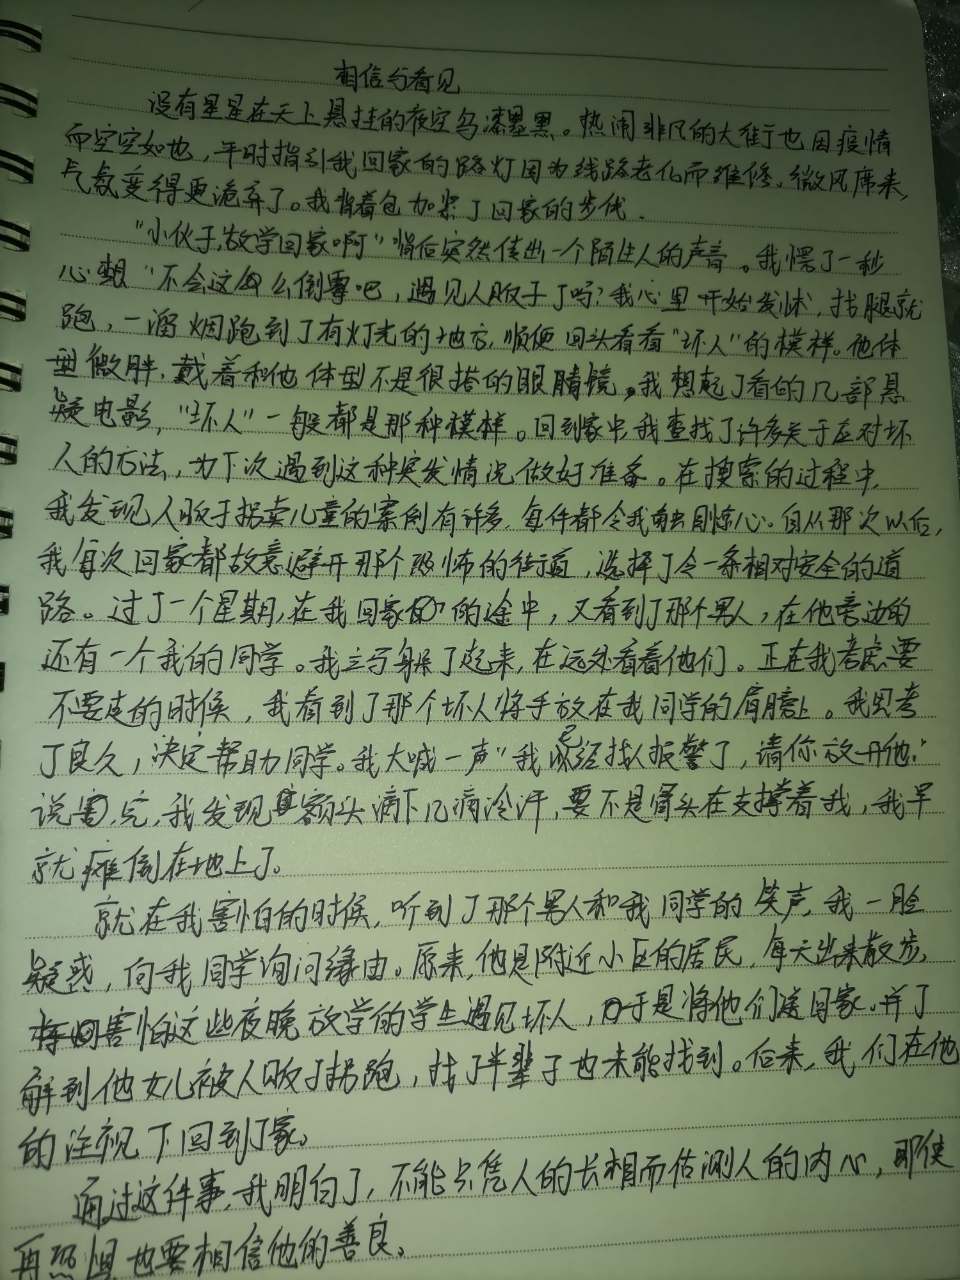 相信与看见
没有星星在天上悬挂的夜空乌漆墨黑。热闹非凡的大街也因疫情
而空空如也，平时指引我回家的路灯因为线路老化而难修，微风席来，
气氛变得更诡弃了。我背着包加紧了回家的步伐．
“小伙子，放学回家啊”背后突然传出一个陌生人的声音。我愣了一秒
心想“不会这么倒霉吧，遇见人贩子了吗？我心里开始发怵，拔腿就
跑，一溜烟跑到了有灯光的地方，顺便回头看看“坏人”的模样。他体
型微胖，戴着和他体型不是很搭的眼睛镜。我想起了看的几部悬
疑电影，“坏人”一般都是那种模样。回到家中，我查找了许多关于应对坏
人的方法，为下次遇到这种突发情况做好准备。在搜索的过程中，
我发现人贩子拐卖儿童的案例有许多，每件都令我触目惊心。自从那次以后，
我每次回家都故意避开那个恐怖的街道，选择了令一条相对安全的道
路。过了一个星期，在我回家的途中，又看到了那个男人，在他旁边的
还有一个我的同学。我立马躲了起来，在远处看着他们。正在我考虑要
不要走的时候，我看到了那个坏人将手放在我同学的肩膀上。我思考
了良久，决定帮助同学。我大喊一声“我已经找人报警了，请你放开他！”
说完，我发现额头滴下几滴冷汗，要不是骨头在支撑着我，我早
就瘫倒在地上了。
就在我害怕的时候，听到了那个男人和我同学的笑声，我一脸
疑惑，向我同学询问缘由。原来，他是附近小区的居民，每天出来散步，
害怕这些夜晚放学的学生遇见坏人，于是将他们送回家。并了
解到他女儿被人贩子拐跑，找了半辈子也未能找到。后来，我们在他
的注视下回到了家。
通过这件事，我明白了，不能只凭人的长相而估测人的内心，即使
再恐惧也要相信他的善良。